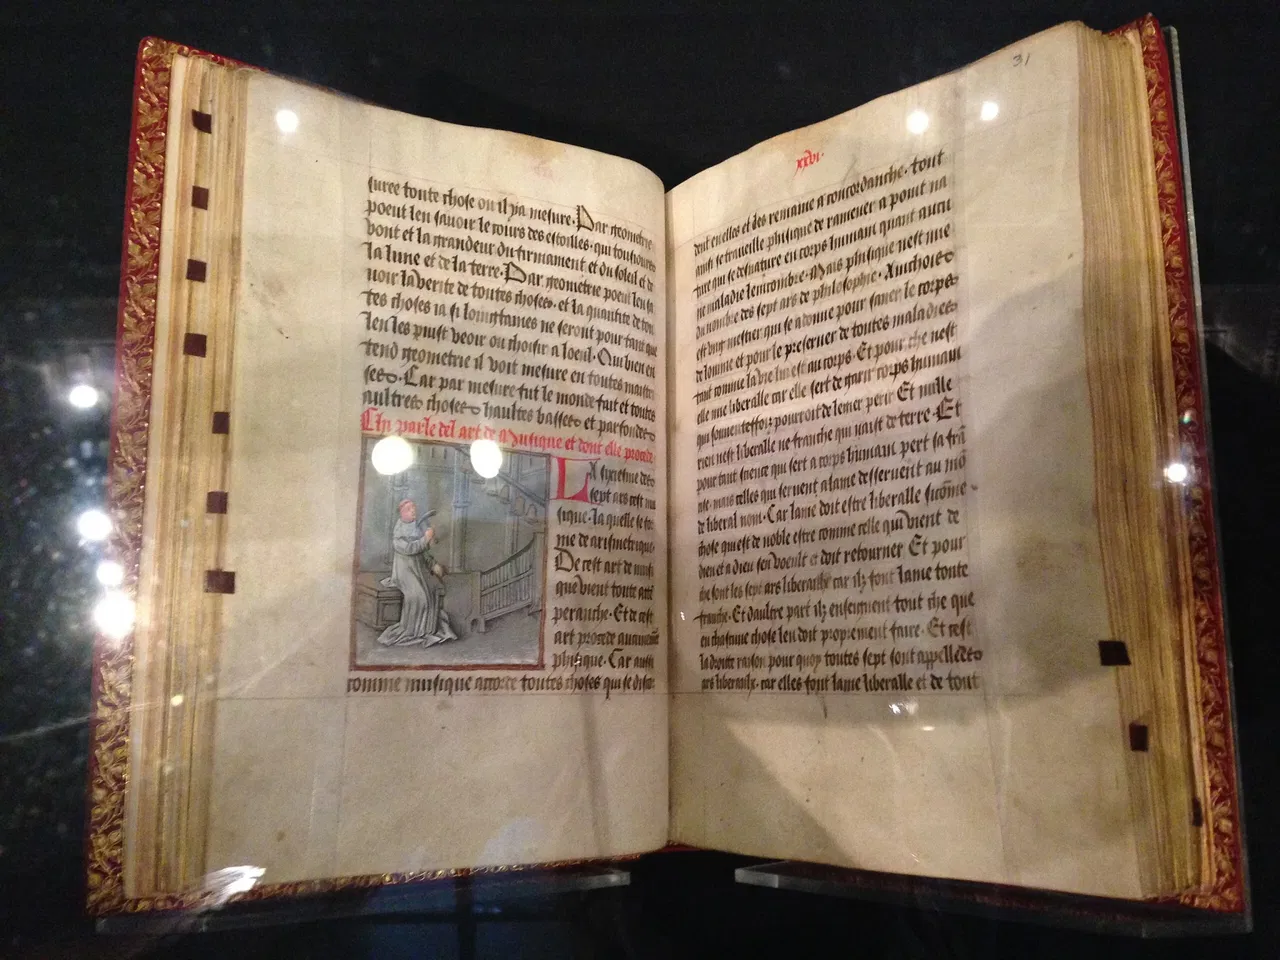 suree toute chose ou il y a mesure. Par geometrie
poeut len sauoir le cours des estoilles. qui tousiours
vont et la grandeur du firmament et du soleil et de
la lune et de la terre. Par geometrie poeut len sa
uoir la verite de toutes choses. et la quantite de tou
tes choses ia si longtames ne seront pour tant que
len les puist veoir ou choisir a loeul. Qui bien en
tend geometrie il voit mesure en toutes maist
ses. Car par mesure fut le monde fait et toutes
aultres choses haultes basses et parfondes
Cy parle del art de Musique et dont elle procede.
La syxiesme des
sept ars est mu
sique. la quelle se for
me de arismetique.
De cest art de musi
que vient toute atte
perance. Et de cest
art procede aucunement
phisique. Car aussi
comme musique accorde toutes choses qui se discor
31
xxvi.
dent en elles et des remaine a concordanche. tout
aussi se traueille phisique de ramener a point na
ture qui se desnature en corps humain quant aucu
ne maladie lencombre. Mais phisique nest mie
du nombre des sept ars de philosophie. Anchois
est vng mestier qui se adonne pour saner le corps
de lomme et pour le preseruer de toutes maladies
tant comme la vie lui est au corps. Et pour che nest
elle mie liberalle car elle sert de garir corps humain
qui souuenteffoiz pourroit de legier perir Et nulle
rien nest liberalle ne franche qui naist de terre. Et
pour tant science qui sert a corps humain pert sa fran
mse. mais celles qui seruent a lame desseruent au mo
de liberal nom. Car lame doit estre liberalle sicome
chose qui est de noble estre comme celle qui vient de
dieu et a dieu sen voeult et doit retourner Et pour
che sont les sept ars liberaulx car ilz font lame toute
franche. Et daultre part ilz enseignent tout che que
en chascune chose len doit proprement faire. Et cest
la droite raison pour quoy toutes sept sont appellees
ars liberaulx. car elles font lame liberalle et de tout